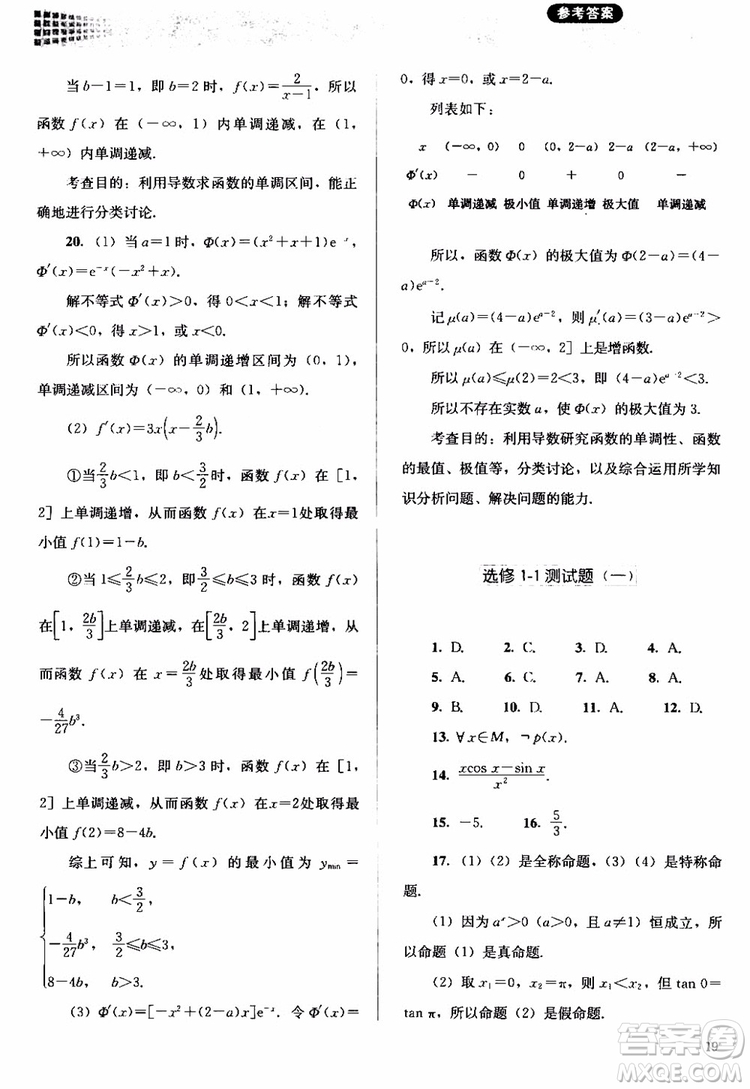 参考答案
当b-1=1，即b=2时，f(x)=2/(x-1)，所以
函数f(x)在(-∞，1)内单调递减，在(1，
+∞)内单调递减.
考查目的：利用导数求函数的单调区间，能正
确地进行分类讨论.
20. (1) 当a=1时，Φ(x)=(x²+x+1)e⁻ˣ，
Φ′(x)=e⁻ˣ(-x²+x).
解不等式Φ′(x)>0，得0<x<1；解不等式
Φ′(x)<0，得x>1，或x<0.
所以函数Φ(x)的单调递增区间为(0，1)，
单调递减区间为(-∞，0)和(1，+∞).
(2) f′(x)=3x(x-2/3b).
①当2/3b<1，即b<3/2时，函数f(x)在[1，
2]上单调递增，从而函数f(x)在x=1处取得最
小值f(1)=1-b.
②当1≤2/3b≤2，即3/2≤b≤3时，函数f(x)
在[1，2b/3]上单调递减，在[2b/3，2]上单调递增，从
而函数f(x)在x=2b/3处取得最小值f(2b/3)=
-4/27b³.
③当2/3b>2，即b>3时，函数f(x)在[1，
2]上单调递减，从而函数f(x)在x=2处取得最
小值f(2)=8-4b.
综上可知，y=f(x)的最小值为y_min=
{1-b，b<3/2，
-4/27b³，3/2≤b≤3，
8-4b，b>3.
(3) Φ′(x)=[-x²+(2-a)x]e⁻ˣ. 令Φ′(x)=
0，得x=0，或x=2-a.
列表如下：
x (-∞，0) 0 (0，2-a) 2-a (2-a，+∞)
Φ′(x) - 0 + 0 -
Φ(x) 单调递减 极小值 单调递增 极大值 单调递减
所以，函数Φ(x)的极大值为Φ(2-a)=(4-
a)eᵃ⁻².
记μ(a)=(4-a)eᵃ⁻²，则μ′(a)=(3-a)eᵃ⁻²>
0，所以μ(a)在(-∞，2]上是增函数.
所以μ(a)≤μ(2)=2<3，即(4-a)eᵃ⁻²<3.
所以不存在实数a，使Φ(x)的极大值为3.
考查目的：利用导数研究函数的单调性、函数
的最值、极值等，分类讨论，以及综合运用所学知
识分析问题、解决问题的能力.
选修1-1测试题（一）
1. D. 2. C. 3. D. 4. A.
5. A. 6. D. 7. C. 8. A.
9. B. 10. D. 11. A. 12. A.
13. ∀x∈M，¬p(x).
14. (xcos x-sin x)/x².
15. -5. 16. 5/3.
17. (1)(2)是全称命题，(3)(4)是特称命
题.
(1) 因为aˣ>0(a>0，且a≠1)恒成立，所
以命题(1)是真命题.
(2) 取x₁=0，x₂=π，则x₁<x₂，但tan 0=
tan π，所以命题(2)是假命题.
19
MXQE.COM